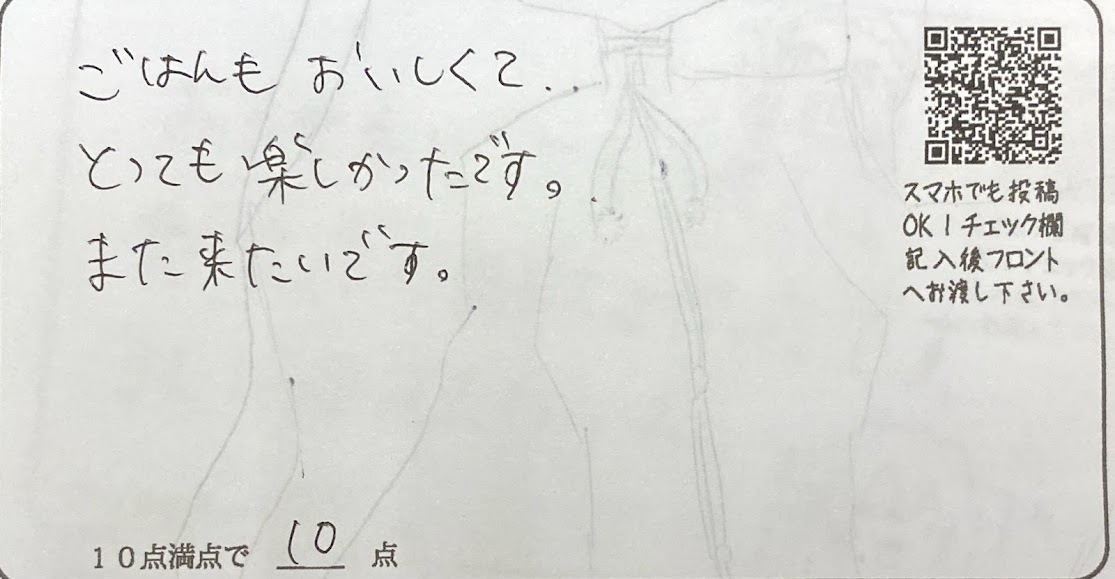 ごはんも おいしくて..
とっても楽しかったです。
また来たいです。
スマホでも投稿
OK！チェック欄
記入後フロント
へお渡し下さい。
１０点満点で 10 点